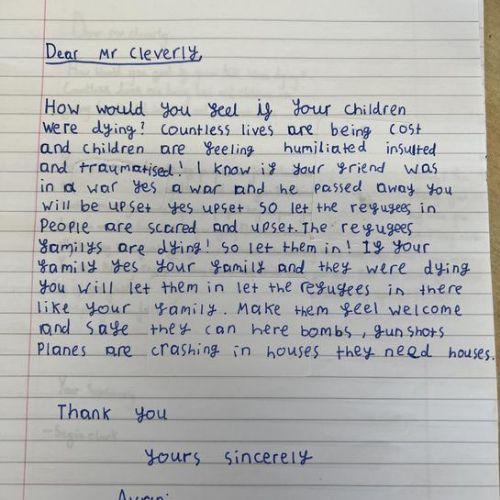 Dear Mr Cleverly,
How would you feel if your children
were dying? Countless lives are being cost
and children are feeling humiliated insulted
and traumatised! I know if your friend was
in a war yes a war and he passed away you
will be upset yes upset so let the refugees in
People are scared and upset. The refugees
familys are dying! So let them in! If your
family yes your family and they were dying
you will let them in let the refugees in there
like your family. Make them feel welcome
and safe they can here bombs, gunshots
Planes are crashing in houses they need houses.
Thank you
Yours sincerely